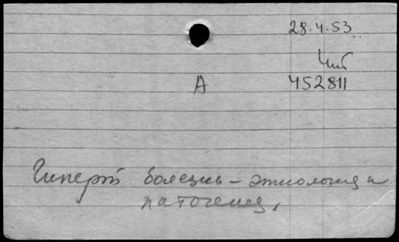 28.4.53
Чит
A 452811
Гиперт. болезнь – этиология и
патогенез,